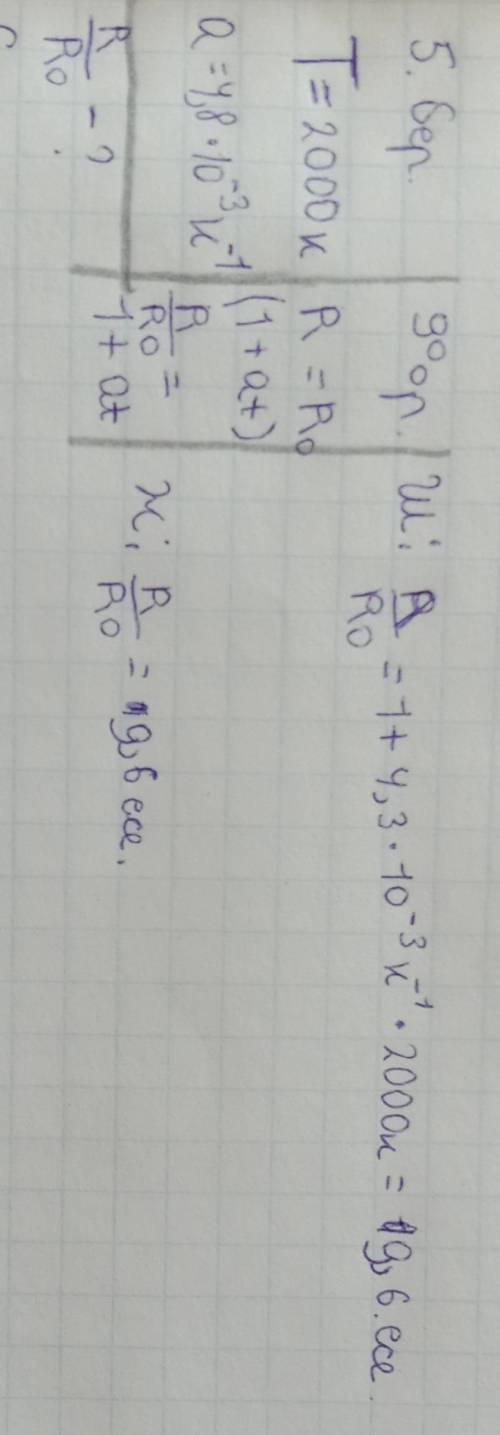 5. бер.
T = 2000 к
a = 4,8 · 10⁻³ к⁻¹
R/R₀ - ?
R = R₀
(1 + at)
R/R₀ =
1 + at
Ш: R/R₀ = 1 + 4,3 · 10⁻³ к⁻¹ · 2000к = 9,6 есе.
Ж: R/R₀ = 9,6 есе.